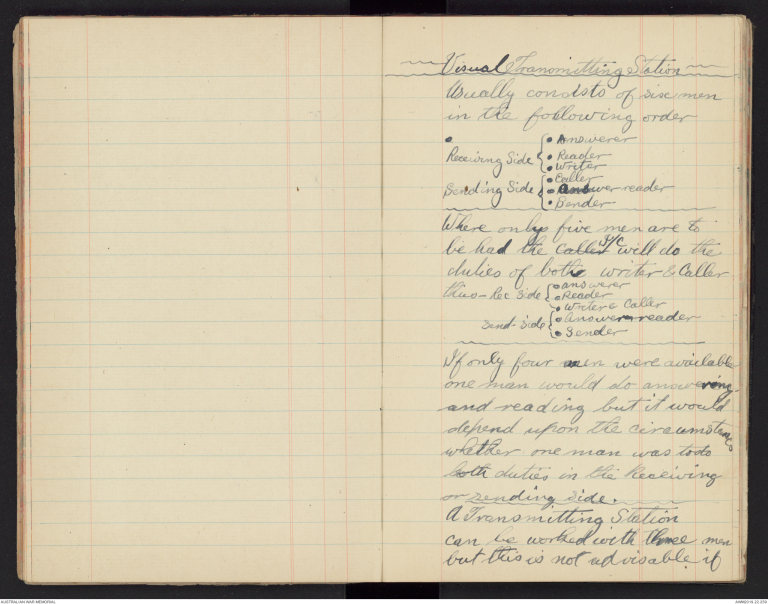 Visual Transmitting Station
Usually consists of six men
in the following order
Receiving Side { • Answerer
• Reader
• Writer
Sending Side { • Caller
• Answer-reader
• Sender
Where only five men are to
be had the Caller will do the
duties of both writer & Caller
thus - Rec Side { • answerer
• Reader
• Writer & Caller
Send-Side { • Answer-reader
• Sender
If only four men were available
one man would do answering
and reading but it would
depend upon the circumstances
whether one man was to do
both duties in the Receiving
or sending side.
A Transmitting Station
can be worked with three men
but this is not advisable if
AUSTRALIAN WAR MEMORIAL